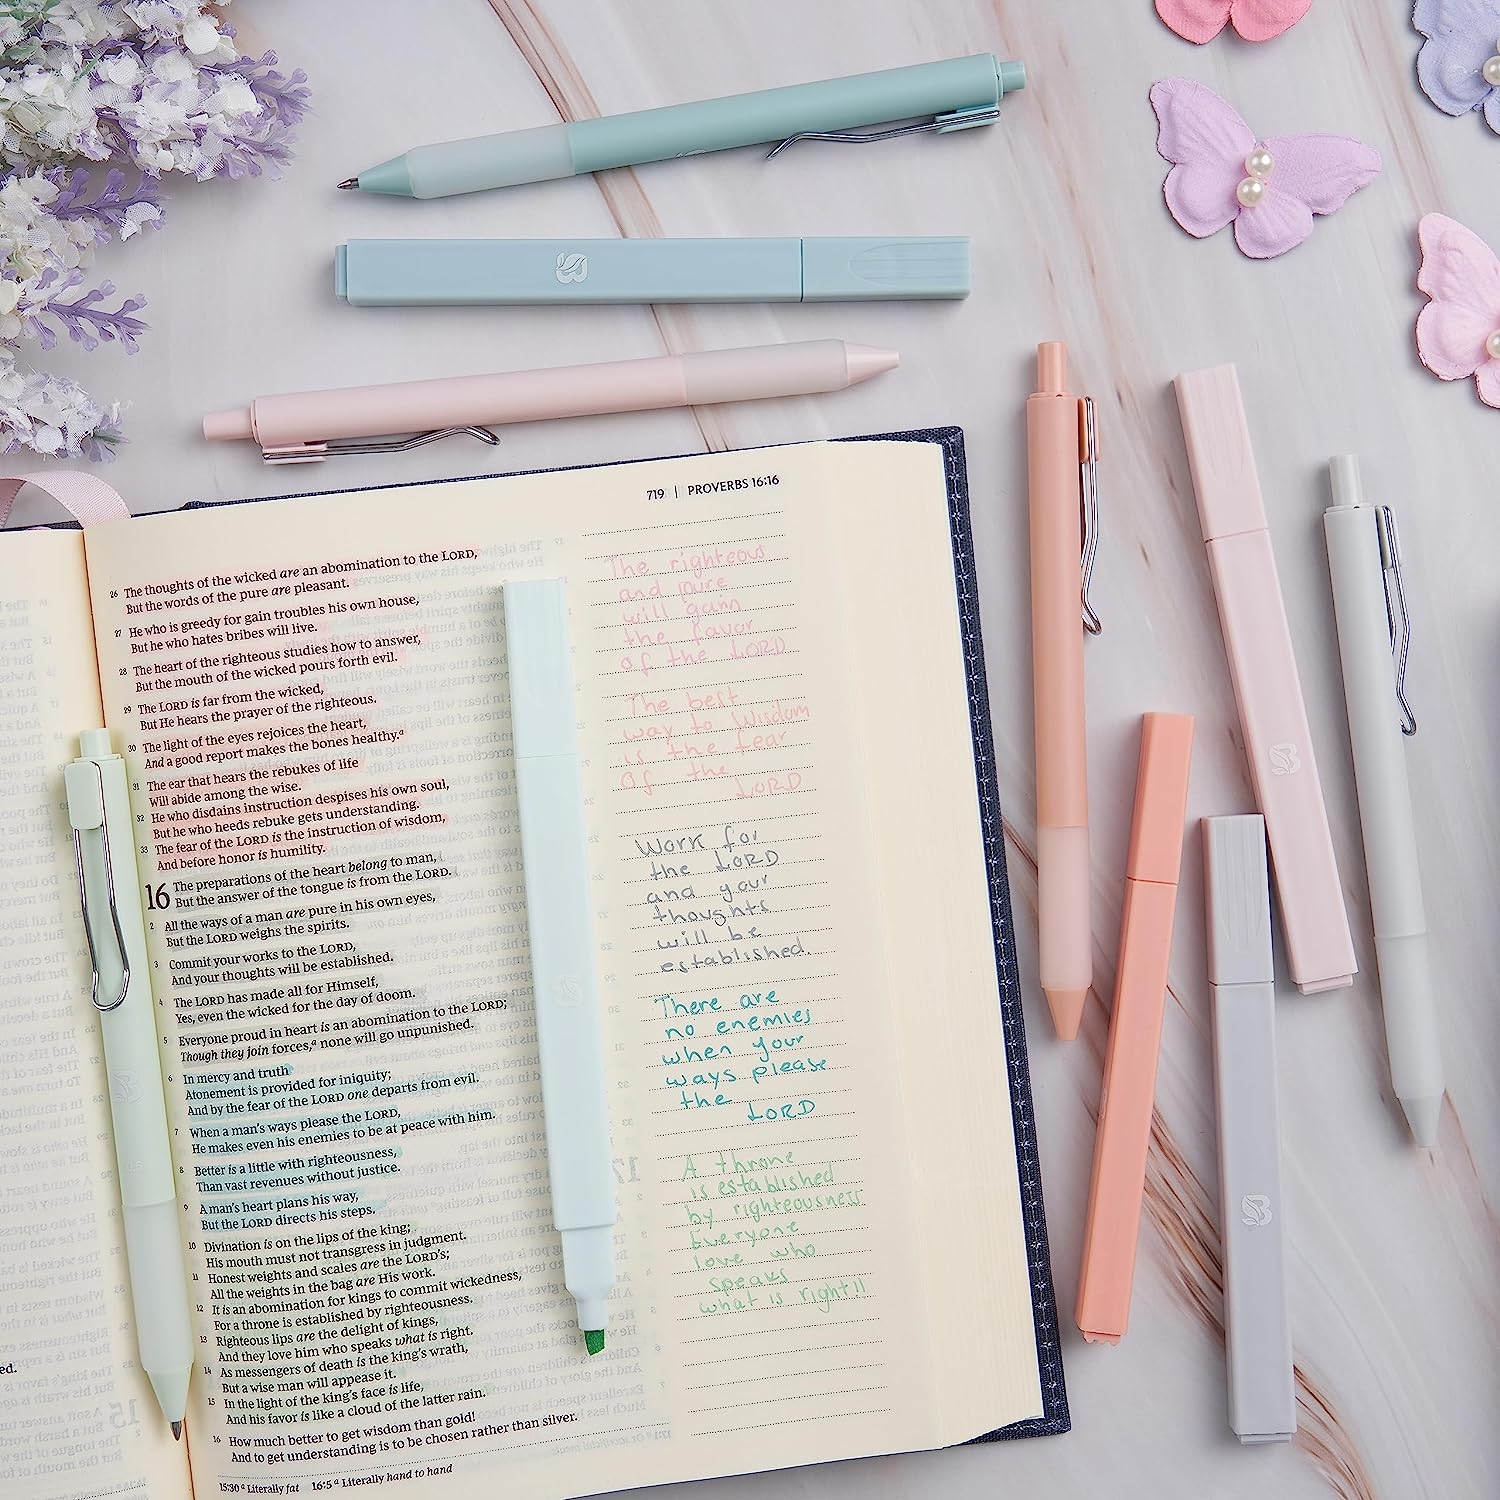 719 | PROVERBS 16:16
26 The thoughts of the wicked are an abomination to the LORD,
But the words of the pure are pleasant.
27 He who is greedy for gain troubles his own house,
But he who hates bribes will live.
28 The heart of the righteous studies how to answer,
But the mouth of the wicked pours forth evil.
29 The LORD is far from the wicked,
But He hears the prayer of the righteous.
30 The light of the eyes rejoices the heart,
And a good report makes the bones healthy.a
31 The ear that hears the rebukes of life
Will abide among the wise.
32 He who disdains instruction despises his own soul,
But he who heeds rebuke gets understanding.
33 The fear of the LORD is the instruction of wisdom,
And before honor is humility.
16 The preparations of the heart belong to man,
But the answer of the tongue is from the LORD.
2 All the ways of a man are pure in his own eyes,
But the LORD weighs the spirits.
3 Commit your works to the LORD,
And your thoughts will be established.
4 The LORD has made all for Himself,
Yes, even the wicked for the day of doom.
5 Everyone proud in heart is an abomination to the LORD;
Though they join forces,a none will go unpunished.
6 In mercy and truth
Atonement is provided for iniquity;
And by the fear of the LORD one departs from evil.
7 When a man's ways please the LORD,
He makes even his enemies to be at peace with him.
8 Better is a little with righteousness,
Than vast revenues without justice.
9 A man's heart plans his way,
But the LORD directs his steps.
10 Divination is on the lips of the king;
His mouth must not transgress in judgment.
11 Honest weights and scales are the LORD's;
All the weights in the bag are His work.
12 It is an abomination for kings to commit wickedness,
For a throne is established by righteousness.
13 Righteous lips are the delight of kings,
And they love him who speaks what is right.
14 As messengers of death is the king's wrath,
But a wise man will appease it.
15 In the light of the king's face is life,
And his favor is like a cloud of the latter rain.
16 How much better to get wisdom than gold!
And to get understanding is to be chosen rather than silver.
15:30 a Literally fat 16:5 a Literally hand to hand
The righteous
and pure
will gain
the favor
of the LORD
The best
way to Wisdom
is the fear
Of the
LORD
Work for
the LORD
and your
thoughts
will be
established.
There are
no enemies
when your
ways please
the
LORD
A throne
is established
by righteousness
Everyone
love who
speaks
what is right!!
ed.